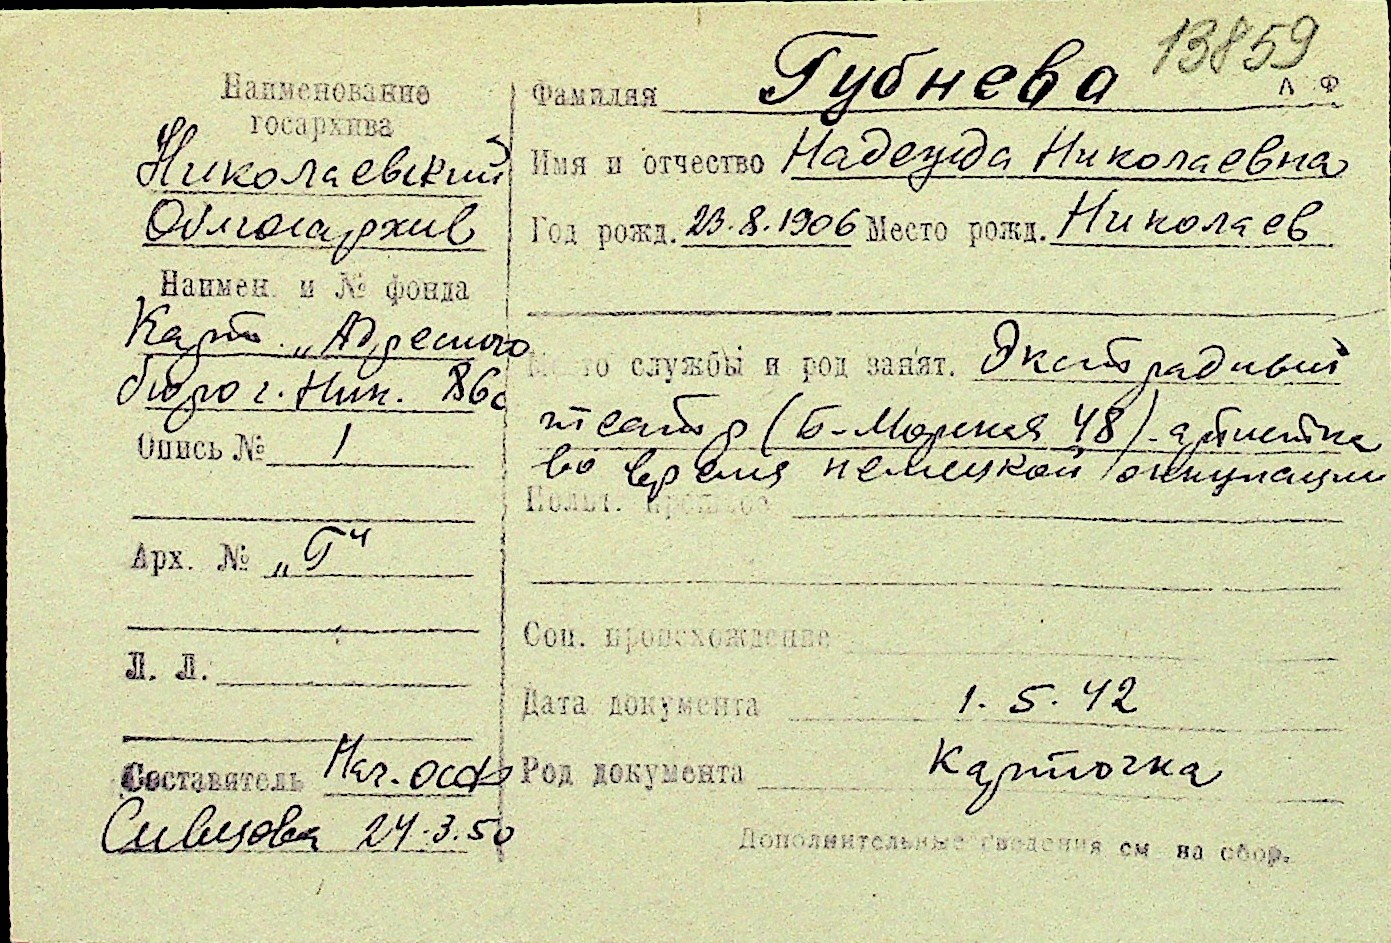 13859
Наименование
госархива
Николаевский
Облгосархив
Наимен. и № фонда
Карт. „Адресного
бюро г. Ник.
Опись № 1
Арх. № „Г“
Л. Л.
Составитель Нач. осф
Сивцова 24.3.50
Фамилия Губнева
Л Ф
Имя и отчество Надежда Николаевна
Год рожд. 23.8.1906 Место рожд. Николаев
Место службы и род занят. Экстрадный
театр (Б-Морская 48) - артистка
во время немецкой оккупации
Полит. прошлое
Соц. происхождение
Дата документа 1.5.42
Род документа Карточка
Дополнительные сведения см на обор.